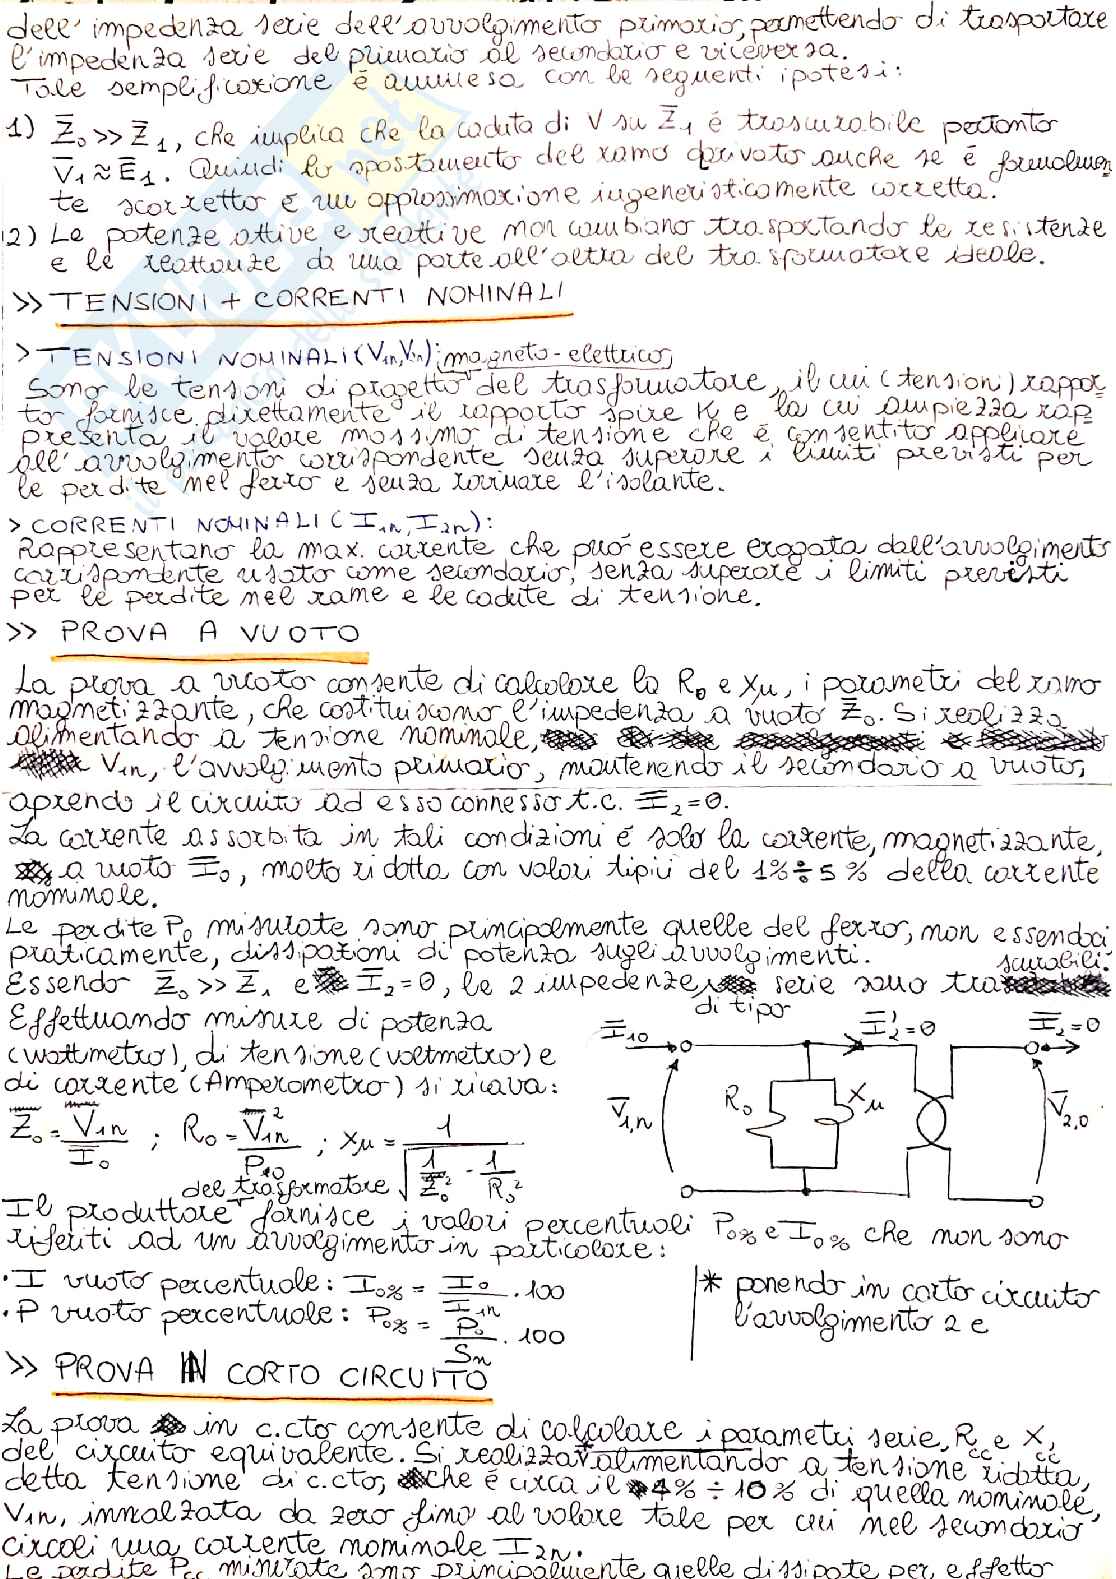 dell'impedenza serie dell'avvolgimento primario, permettendo di trasportare
l'impedenza serie del primario al secondario e viceversa.
Tale semplificazione è ammessa con le seguenti ipotesi:
1) Z̅₀ >> Z̅₁, che implica che la caduta di V su Z̅₁ è trascurabile pertanto
V̅₁ ≈ E̅₁. Quindi lo spostamento del ramo derivato anche se è formalmen=
te scorretto è un approssimazione ingeneristicamente corretta.
2) Le potenze attive e reattive non cambiano trasportando le resistenze
e le reattanze da una parte all'altra del trasformatore ideale.
>> TENSIONI + CORRENTI NOMINALI
> TENSIONI NOMINALI (V₁ₙ, V₂ₙ): magneto-elettrico,
Sono le tensioni di progetto del trasformatore, il cui (tensioni) rappor=
to fornisce direttamente il rapporto spire K, e la cui ampiezza rap=
presenta il valore massimo di tensione che è consentito applicare
all'avvolgimento corrispondente senza superare i limiti previsti per
le perdite nel ferro e senza rovinare l'isolante.
> CORRENTI NOMINALI (I₁ₙ, I₂ₙ):
Rappresentano la max. corrente che può essere erogata dall'avvolgimento
corrispondente usato come secondario, senza superare i limiti previsti
per le perdite nel rame e le cadute di tensione.
>> PROVA A VUOTO
La prova a vuoto consente di calcolare la R₀ e Xμ, i parametri del ramo
magnetizzante, che costituiscono l'impedenza a vuoto Z̅₀. Si realizza
alimentando a tensione nominale,
V₁ₙ, l'avvolgimento primario, mantenendo il secondario a vuoto,
aprendo il circuito ad esso connesso t.c. I̅₂=0.
La corrente assorbita in tali condizioni è solo la corrente, magnetizzante,
a vuoto I̅₀, molto ridotta con valori tipici del 1% ÷ 5% della corrente
nominale.
Le perdite P₀ misurate sono principalmente quelle del ferro, non essendoci
praticamente, dissipazioni di potenza sugli avvolgimenti.
scurabili.
Essendo Z̅₀ >> Z̅₁ e I̅₂=0, le 2 impedenze, serie sono tra
di tipo
Effettuando misure di potenza
(wattmetro), di tensione (voltmetro) e
di corrente (Amperometro) si ricava:
Z̅₀ = V̅₁ₙ / I̅₀ ; R₀ = V̅₁ₙ² / P₁₀ ; Xμ = 1 / √(1/Z̅₀² - 1/R₀²)
I̅₁₀ I̅₂'=0 I̅₂=0
V̅₁,ₙ R₀ Xμ V̅₂,₀
del trasformatore
Il produttore fornisce i valori percentuali P₀% e I₀% che non sono
riferiti ad un avvolgimento in particolare:
· I vuoto percentuale: I₀% = I₀ / I₁ₙ · 100
· P vuoto percentuale: P₀% = P₀ / Sₙ · 100
* ponendo in corto circuito
l'avvolgimento 2 e
>> PROVA IN CORTO CIRCUITO
La prova in c.cto consente di calcolare i parametri serie, Rcc e Xcc,
del circuito equivalente. Si realizza * alimentando a tensione ridotta,
detta tensione di c.cto, che è circa il 4% ÷ 10% di quella nominale,
V₁ₙ, innalzata da zero fino al valore tale per cui nel secondario
circoli una corrente nominale I̅₂ₙ.
Le perdite Pcc misurate sono principalmente quelle dissipate per effetto